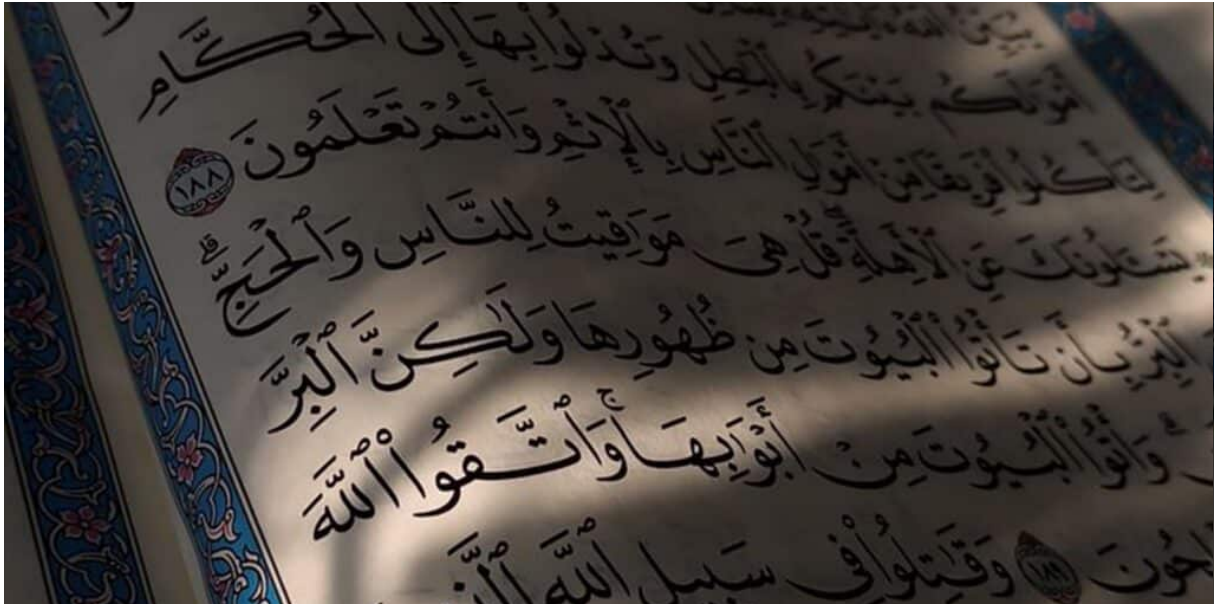 أَمْوَٰلَكُم بَيْنَكُم بِٱلْبَٰطِلِ وَتُدْلُوا۟ بِهَآ إِلَى ٱلْحُكَّامِ
لِتَأْكُلُوا۟ فَرِيقًا مِّنْ أَمْوَٰلِ ٱلنَّاسِ بِٱلْإِثْمِ وَأَنتُمْ تَعْلَمُونَ ١٨٨
يَسْـَٔلُونَكَ عَنِ ٱلْأَهِلَّةِ ۖ قُلْ هِىَ مَوَٰقِيتُ لِلنَّاسِ وَٱلْحَجِّ ۗ
ٱلْبِرُّ بِأَن تَأْتُوا۟ ٱلْبُيُوتَ مِن ظُهُورِهَا وَلَٰكِنَّ ٱلْبِرَّ
وَأْتُوا۟ ٱلْبُيُوتَ مِنْ أَبْوَٰبِهَا ۚ وَٱتَّقُوا۟ ٱللَّهَ
١٨٩ وَقَٰتِلُوا۟ فِى سَبِيلِ ٱللَّهِ